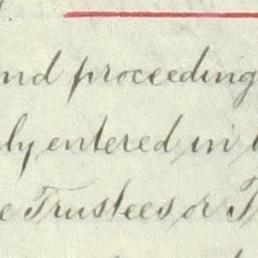 nd proceeding
ly entered in
e Trustees or T